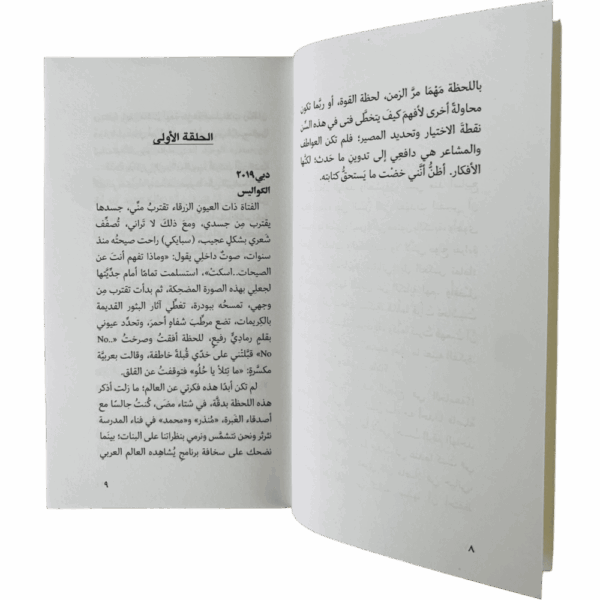 باللحظة مَهْمَا مرَّ الزمن، لحظة القوة، أو ربَّما تكون
محاولةً أخرى لأفهمَ كيفَ يتخطَّى فتى في هذه السِّن
نقطةَ الاختيار وتحديد المصير؛ فلم تكن العواطف
والمشاعر هي دافعِي إلى تدوينِ ما حَدث؛ لكنَّها
الأفكار. أظنُّ أنَّني خضت ما يَستحقُّ كتابته.
٨
الحلقة الأولى
دبي ٢٠١٩
الكواليس
الفتاة ذات العيونِ الزرقاء تقتربُ منِّي، جسدها
يقترب مِن جسدي، ومعَ ذلكَ لا تَراني، تُصفِّف
شَعري بشكلٍ عجيب، (سبايكي) راحت صيحتُه منذ
سنوات، صوتٌ داخلي يقول: «وماذا تفهم أنتَ عن
الصيحات..اسكتْ»، استسلمت تمامًا أمام جدِّيَّتِها
لجعلي بهذه الصورة المضحكة، ثم بدأت تقترب مِن
وجهي، تمسحُه ببودرة، تغطِّي آثار البثور القديمة
بالكِريمات، تضع مرطِّبَ شفاهٍ أحمرَ، وتحدِّد عيوني
بقلمٍ رماديٍّ رفيعٍ، للحظة أفقتُ وصرختُ «No..
No» قبَّلتْني على خدِّي قُبلةً خاطفة، وقالت بعربيَّة
مكسَّرةٍ: «ما تِئلأ يا حُلو» فتوقفتُ عن القلق.
لم تكن أبدًا هذه فكرتي عن العالم؛ ما زلت أذكر
هذه اللحظة بدقَّة، في شتاء مضَى، كُنتُ جالسًا مع
أصدقاء الغَبرة، «مُنذر» و«محمد» في فناء المدرسة
نثرثر ونحن نتشمَّس ونرمي بنظراتنا على البنات؛ بينَما
نضحك على سخافة برنامجٍ يُشاهِده العالم العربي
٩